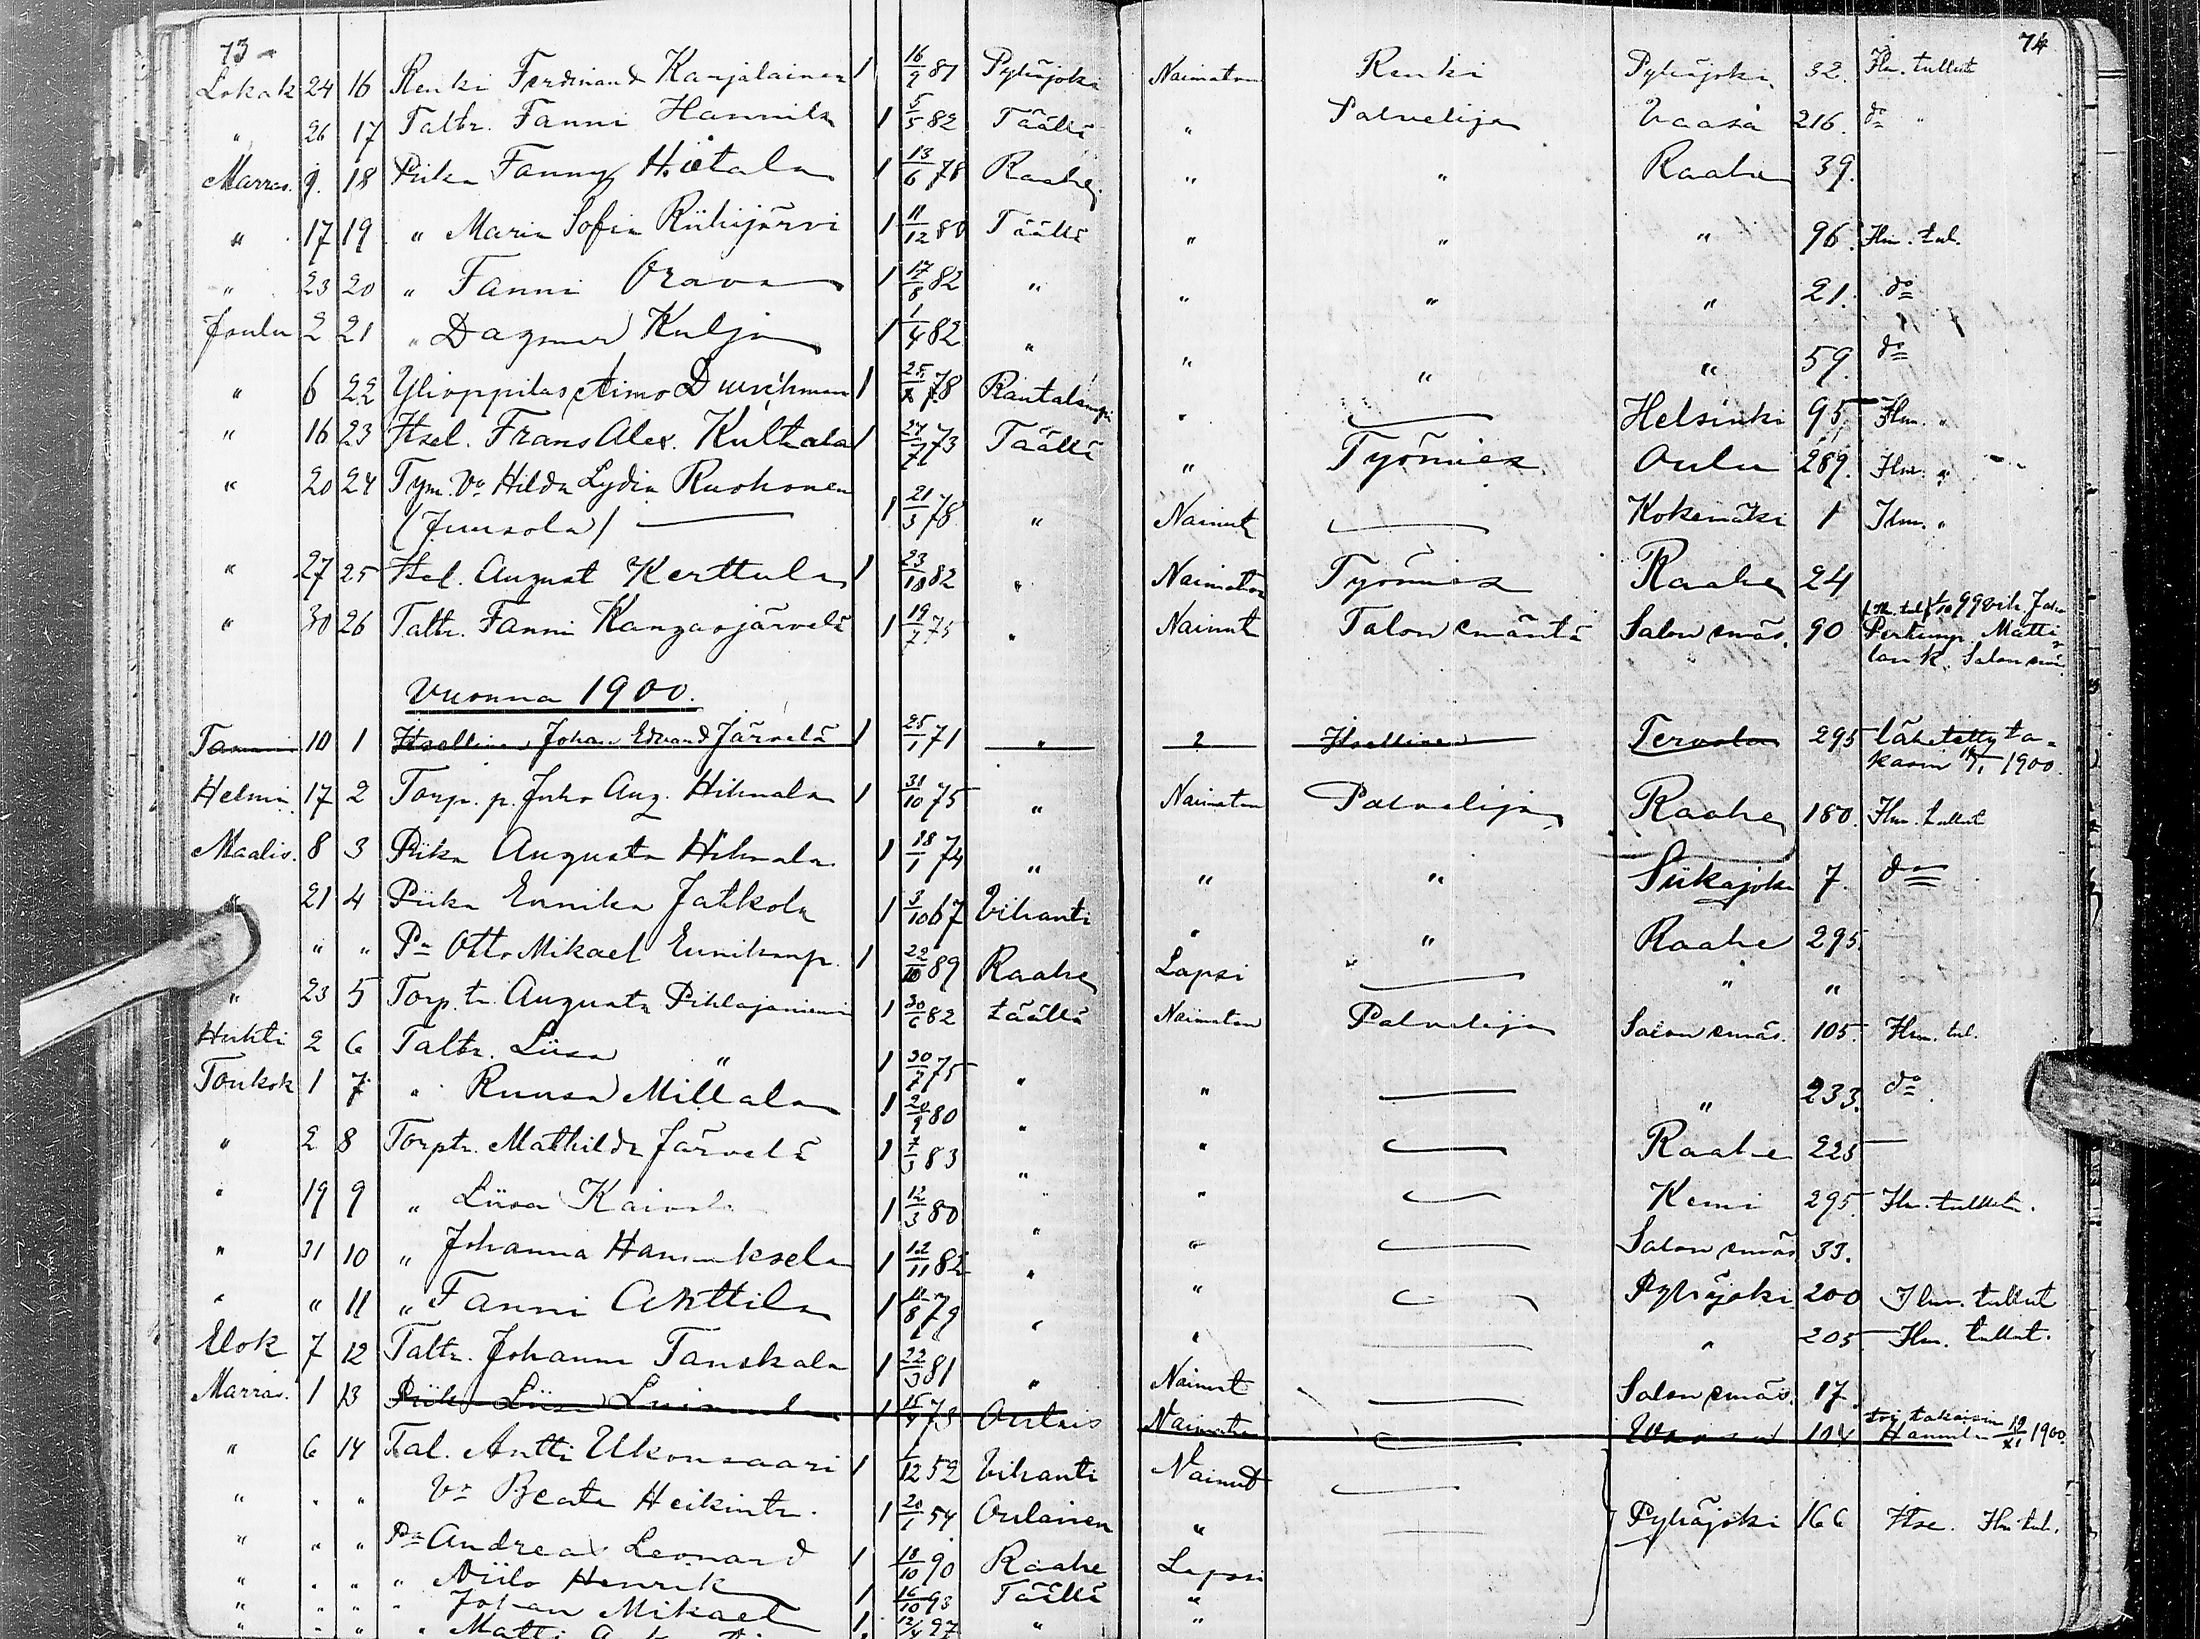 73 74
Lokak 24 16 Renki Ferdinand Karjalainen 1 16/9 81 Pyhäjoki Naimaton Renki Pyhäjoki 32. Ilm. tullut
" 26 17 Taltr. Fanni Hannila 1 5/5 82 Täällä " Palvelija Vaasa 216. do "
Marras. 9. 18 Piika Fanny Hietala 1 13/6 78 Raahe " " Raahe 39.
" 17 19 " Maria Sofia Riihijärvi 1 11/12 80 Täällä " " " 96. Ilm. tul.
" 23 20 " Fanni Orava 1 17/8 82 " " " " 21. do
Joulu 2 21 " Dagmar Kulju 1 1/4 82 " " " " 59. do
" 6 22 Ylioppilas Aimo Durchman 1 78 Rautalampi " Helsinki 95 Ilm. "
" 16 23 Itsel. Frans Alex. Kultala 1 27/7 73 Täällä " Työmies Oulu 289. Ilm. "
" 20 24 Tym. Vo Hilda Lydia Ruohonen
(Juusola) 1 21/3 78 " Nainut Kokemäki 1 Ilm. "
" 27 25 Itsel. August Kerttula 1 23/10 82 " Naimaton Työmies Raahe 24
" 30 26 Taltr. Fanni Kangasjärvelä 1 19/7 75 " Nainut Talon emäntä Salon emäs. 90 Matti
lan k. Salon emä
Vuonna 1900.
Tammi 10 1 Itsellinen Johan Edvard Järvelä 1 25/1 71 " 2 Itsellinen Tervola 295 lähetetty ta=
kasin 1900.
Helmi 17 2 Torp. p. Juho Aug. Hihnala 1 31/10 75 " Naimaton Palvelija Raahe 180. Ilm. tullut
Maalis. 8 3 Piika Augusta Hihnala 1 18/1 74 " " " Siikajoki 7. do
" 21 4 Piika Ennika Jatkola 1 3/10 67 Vihanti " " Raahe 295.
" " Pa Otto Mikael Ennikanp. 1 22/10 89 Raahe Lapsi " "
" 23 5 Torp. tr. Augusta Pihlajaniemi 1 30/6 82 täällä Naimaton Palvelija Salon emäs. 105. Ilm. tul.
Huhti 2 6 Taltr. Liisa " 1 30/7 75 " " " 233. do
Toukok 1 7 " Ruusa Millala 1 20/9 80 " " Raahe 225
" 2 8 Torptr. Mathilda Järvelä 1 7/3 83 " " Kemi 295 Ilm. tullut.
" 19 9 " Liisa Kaivola 1 12/3 80 " " Salon emäs 33.
" 31 10 " Johanna Hannuksela 1 12/11 82 " " Pyhäjoki 200 Ilm. tullut
" " 11 " Fanni Anttila 1 11/8 79 " " " 205 Ilm. tullut.
Elok 7 12 Taltr. Johanna Tanskala 1 22/3 81 " Nainut Salon emäs. 17.
Marras. 1 13 Piika Liisa 1 Oulais Naimaton 104 toi takaisin
Hannila 19/XI 1900.
" 6 14 Tal. Antti Ukonsaari 1 1/12 52 Vihanti Nainut
" " " Vo Beata Heikintr. 1 20/1 54 Oulainen " Pyhäjoki 166 Itse. Ilm. tul.
" " " Pa Andreas Leonard 1 18/10 90 Raahe Lapsi
" " " " Niilo Henrik 1 16/10 93 Täällä "
" " " " Johan Mikael 1 12/4 97 " "
" " " " Matti